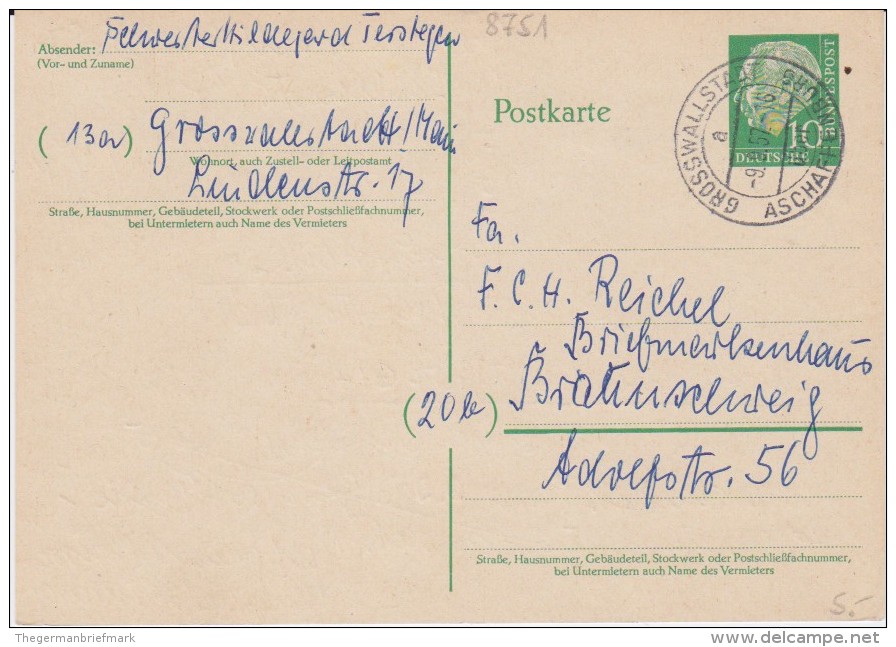 Absender: Schwester Hildegard Terstegen
(Vor- und Zuname)
(13a) Grosswallstadt/Main
Wohnort, auch Zustell- oder Leitpostamt
Lindenstr. 17
Straße, Hausnummer, Gebäudeteil, Stockwerk oder Postschließfachnummer,
bei Untermietern auch Name des Vermieters
8751
Postkarte
DEUTSCHE BUNDESPOST
10
GROSSWALLSTADT
ASCHAFFENBURG
a
Fa.
F. C. H. Reichel
Briefmarkenhaus
(20b) Braunschweig
Adolfstr. 56
Straße, Hausnummer, Gebäudeteil, Stockwerk oder Postschließfachnummer,
bei Untermietern auch Name des Vermieters
5.-
Thegermanbriefmark
delcampe.net